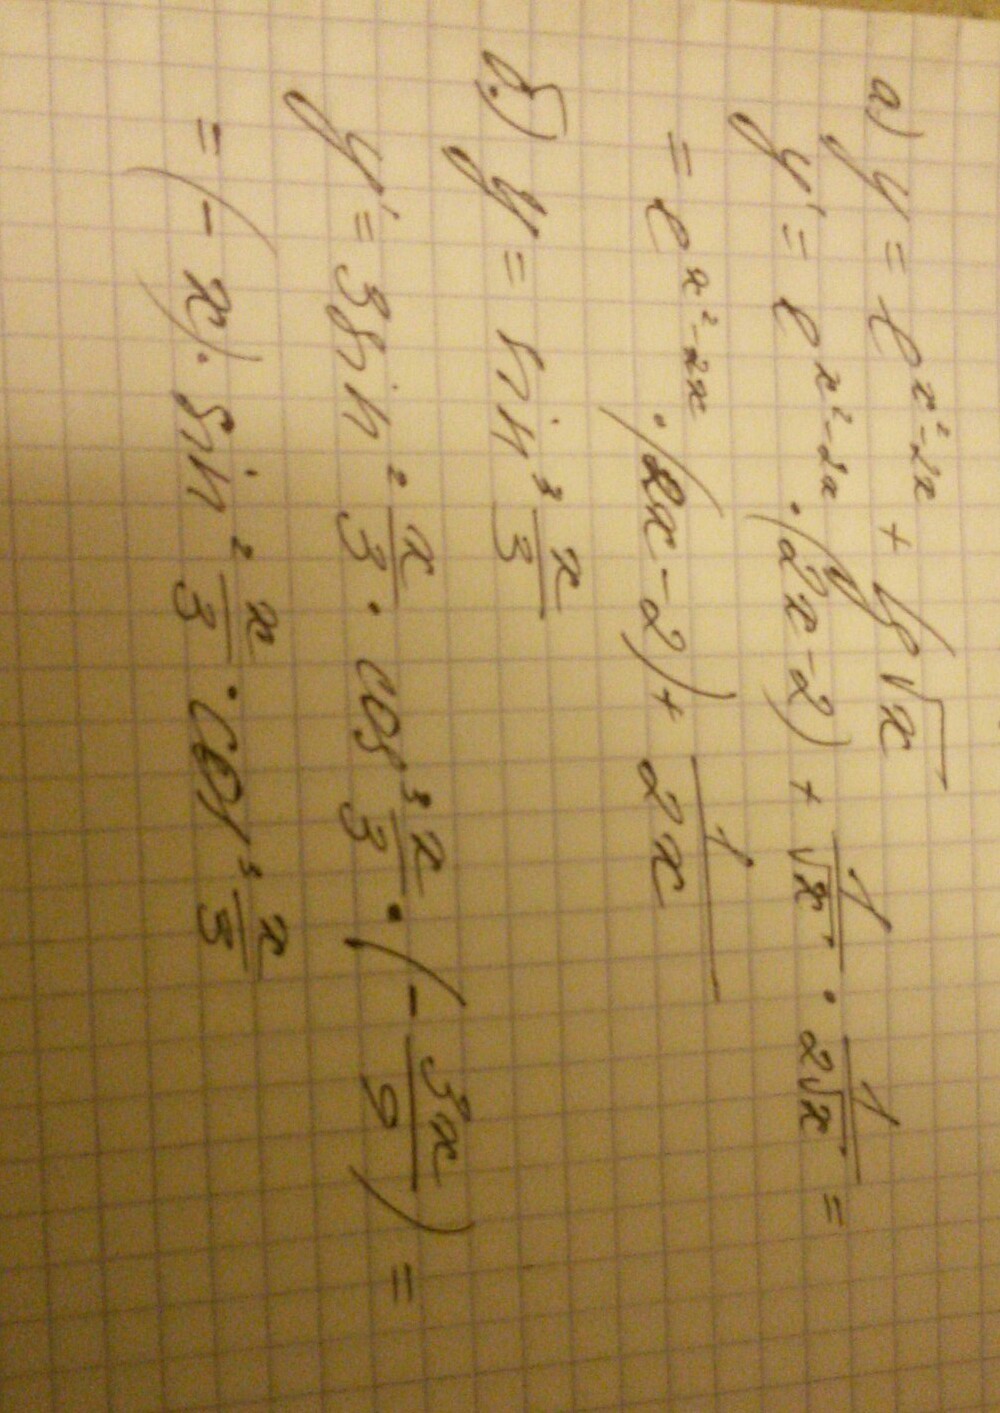 а) y = e^{x²-2x} + lg √x
y' = e^{x²-2x} · (2x-2) + 1/√x · 1/(2√x) =
= e^{x²-2x} · (2x-2) + 1/(2x)
б.) y = sin³ x/3
y' = 3sin² x/3 · cos³ x/3 · (- 3x/9) =
= (-x) · sin² x/3 · cos³ x/3